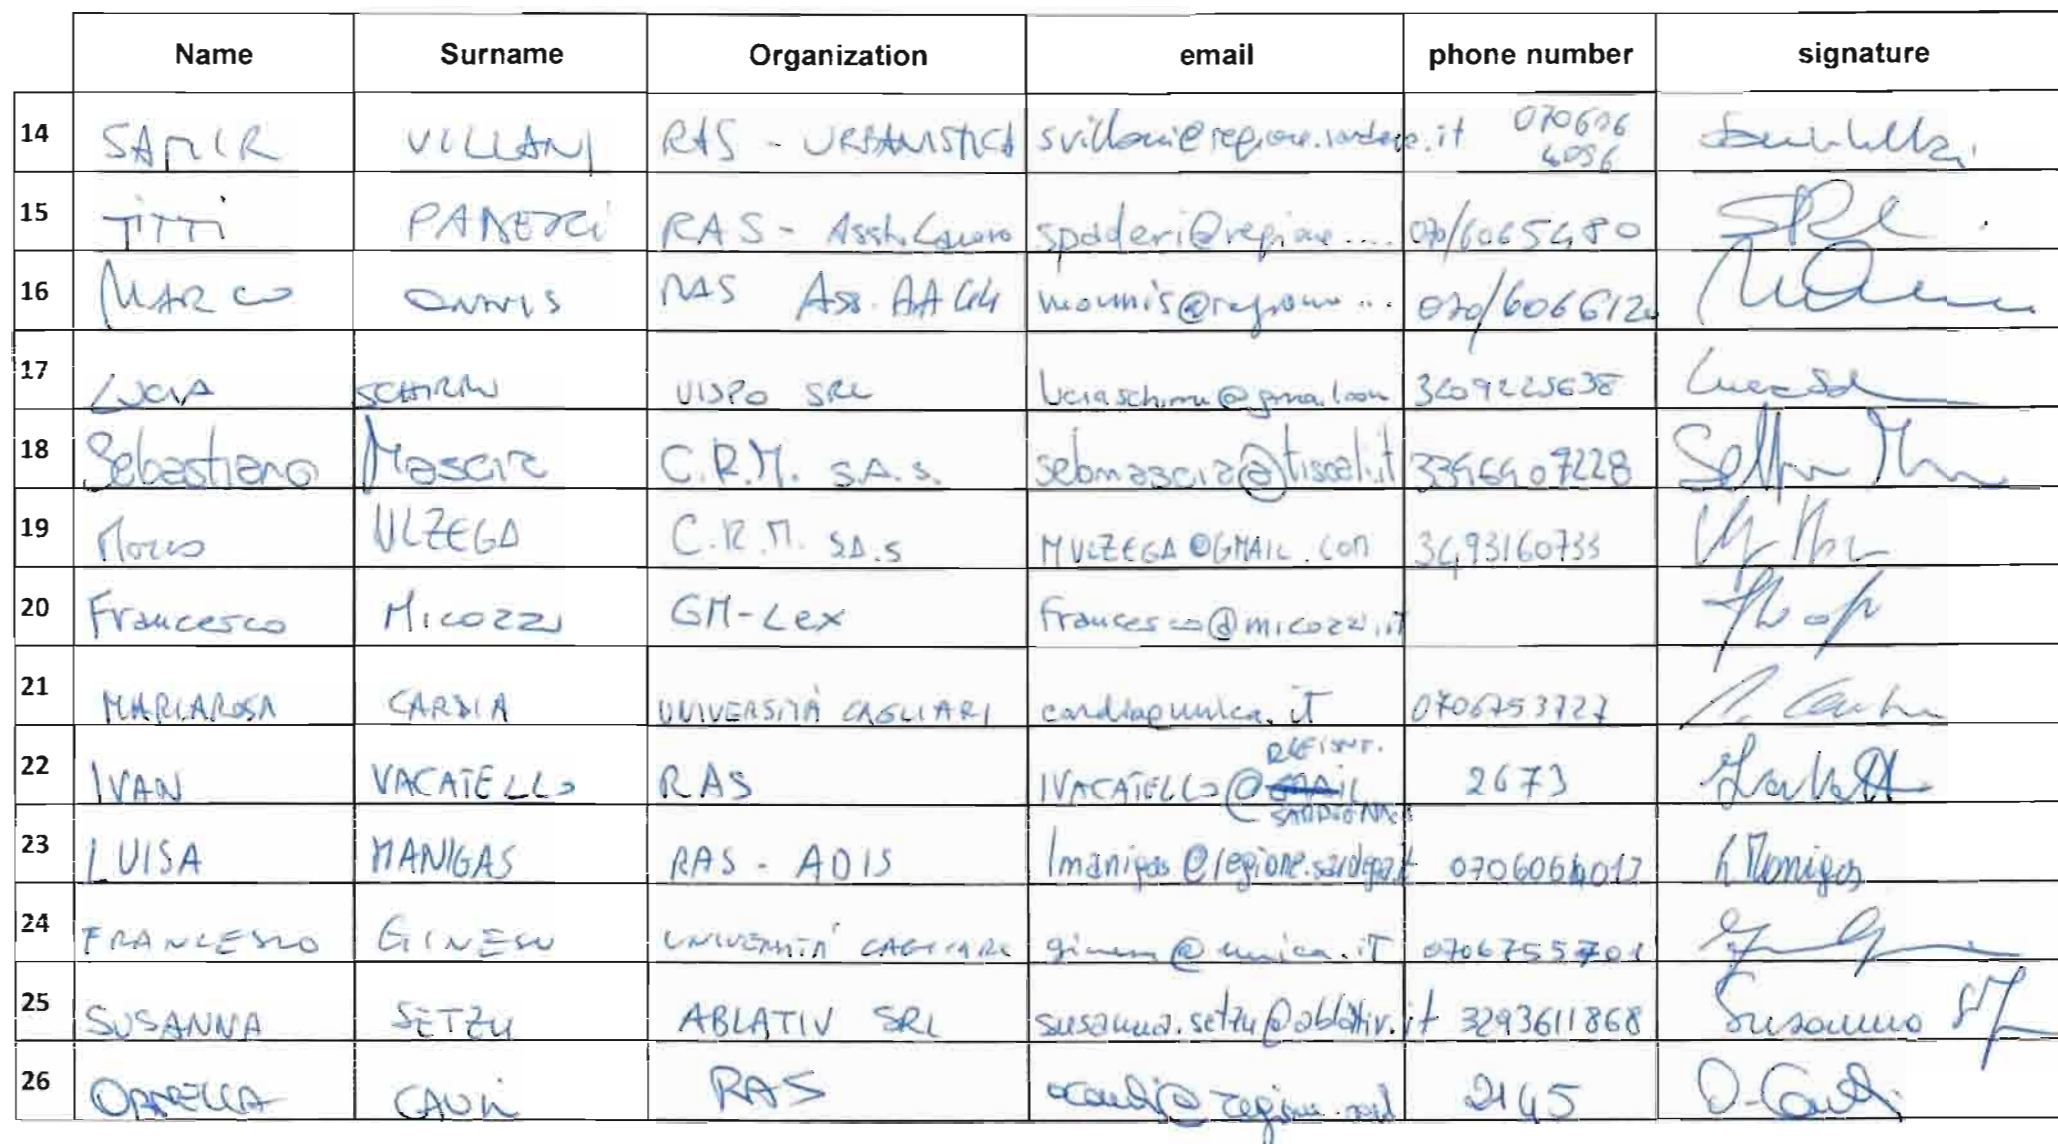 Name Surname Organization email phone number signature
14 SAMIR VILLANI RAS - URBANISTICA svillani@regione.sardegna.it 070606 4096
15 TITTI PADERI RAS - Ass. Lavoro spaderi@regione .... 070/6065480
16 MARCO ONNIS RAS Ass. AAGG moonnis@regione ... 070/6066120
17 LUCIA SCHIRRU VISPO SRL luciaschirru@gmail.com 3209225638
18 Sebastiano Mascia C.R.M. S.A.S. sebmascia@tiscali.it 3396407228
19 Marco ULZEGA C.R.M. SA.S MULZEGA@GMAIL.COM 3493160733
20 Francesco Micozzi GM-Lex francesco@micozzi.it
21 MARIAROSA CARDIA UNIVERSITÀ CAGLIARI cardia@unica.it 0706753727
22 IVAN VACATELLO RAS IVACATELLO@ REGIONE. SARDEGNA.IT 2673
23 LUISA MANIGAS RAS - ADIS lmanigas@regione.sardegna.it 0706064017 L Manigas
24 FRANCESCO GINESU UNIVERSITÀ CAGLIARI ginesu@unica.it 0706755701
25 SUSANNA SETZU ABLATIV SRL susanna.setzu@ablativ.it 3293611868 Susanna
26 ORNELLA CAULI RAS ocauli@regione.sard 2145 O. Cauli